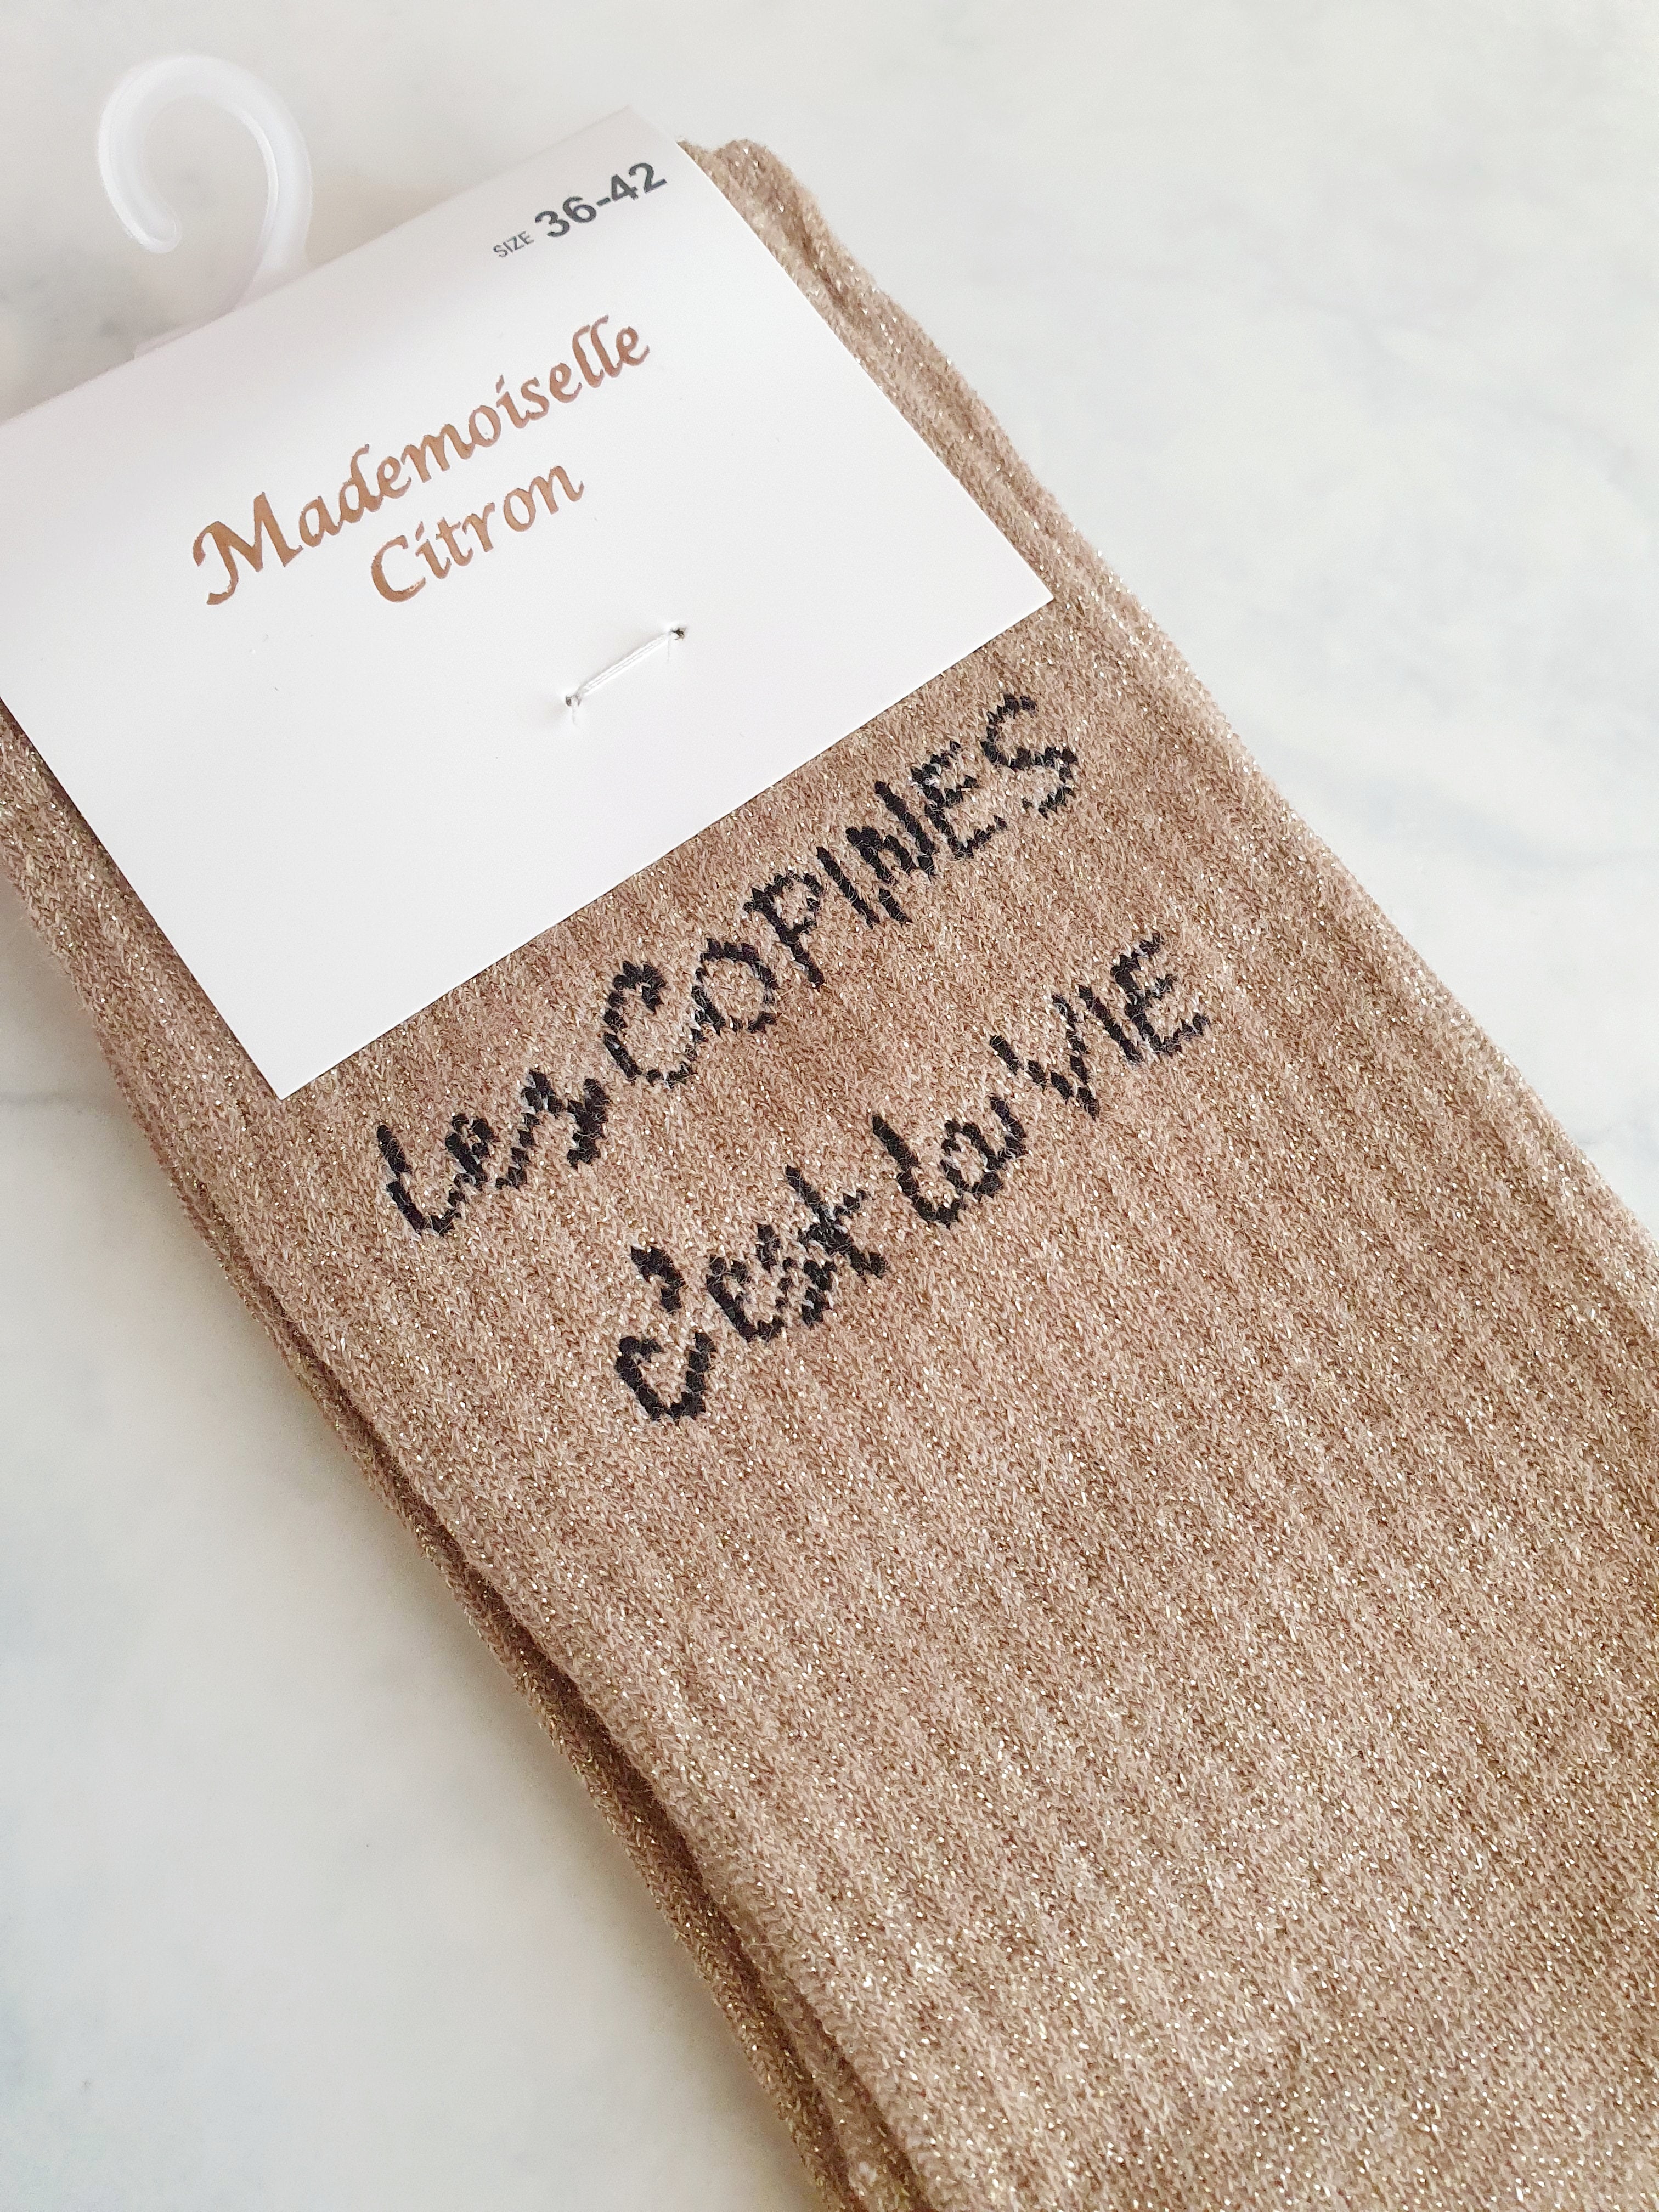 SIZE 36-42
Mademoiselle
Citron
Les COPINES
c'est la VIE